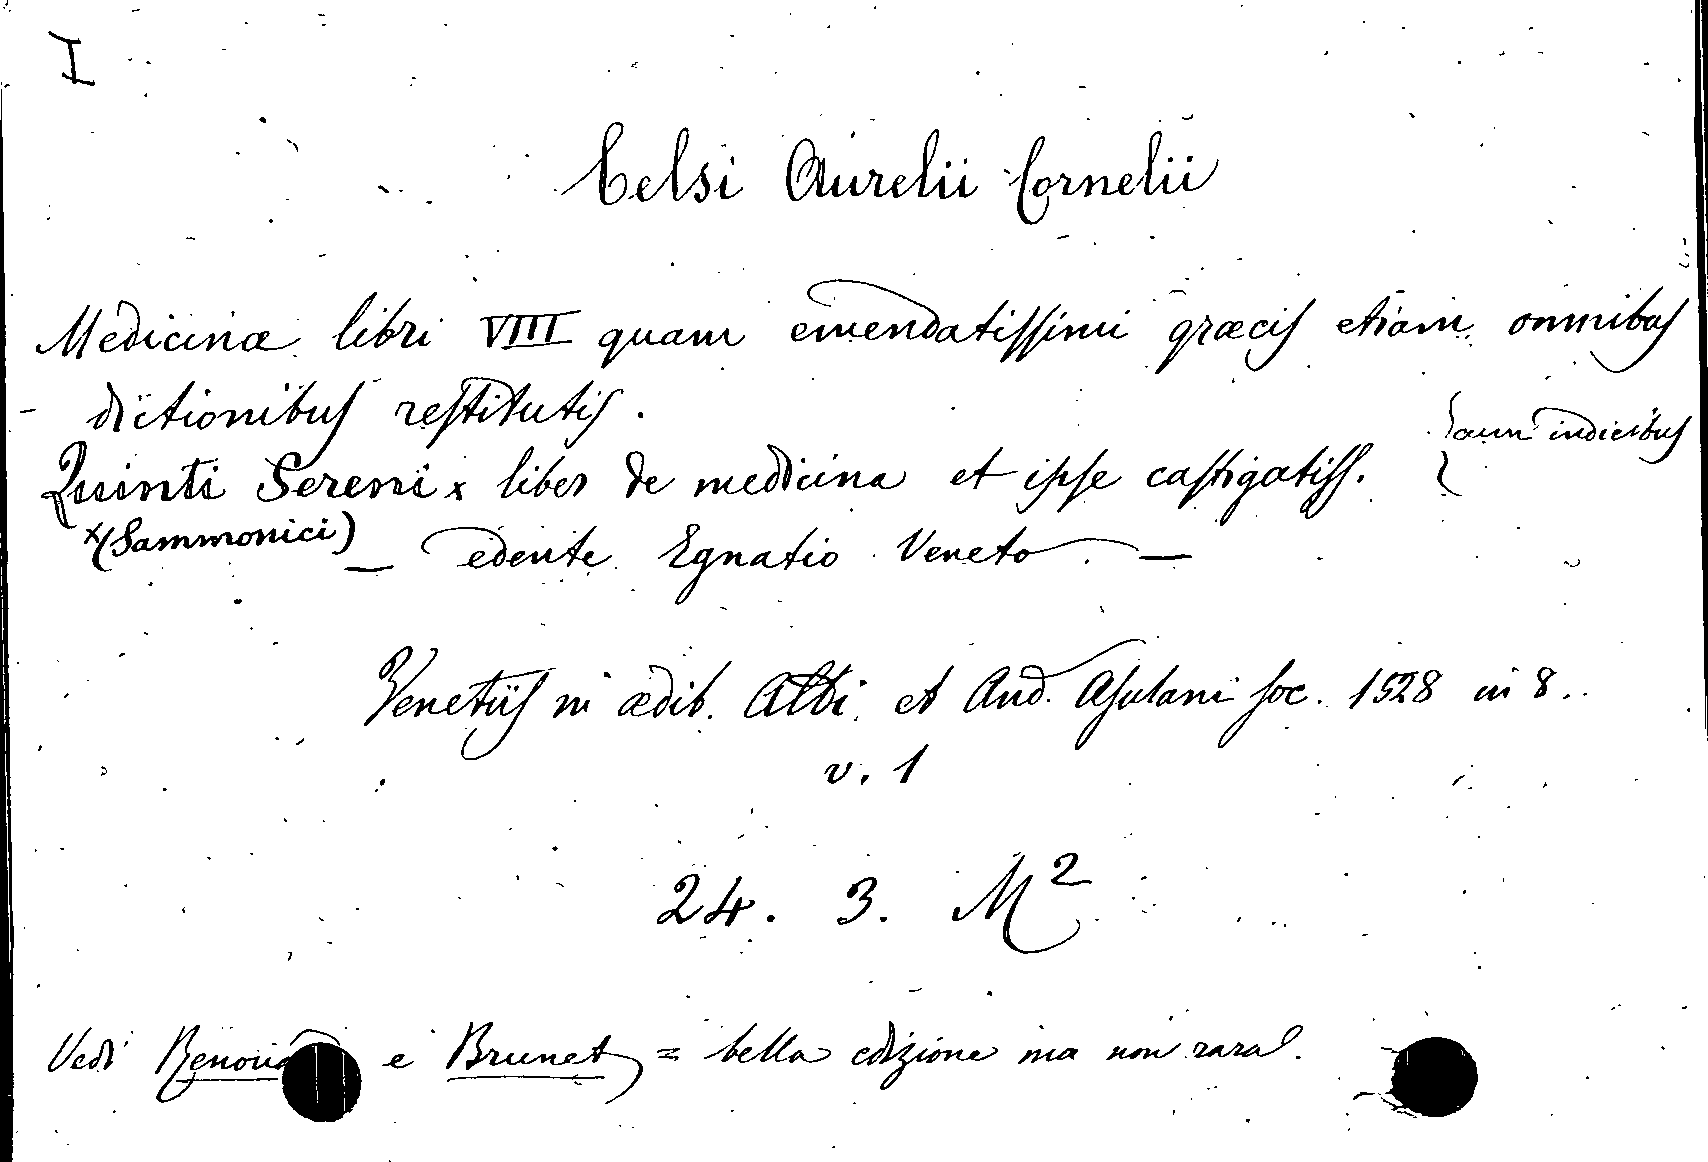 I
Celsi Aurelii Cornelii
Medicinæ libri VIII quam emendatissimi græcis etiam omnibus
dictionibus restitutis.
Quinti Sereni x liber de medicina et ipse castigatiss. { cum indicibus
x (Sammonici)
— edente Egnatio Veneto. —
Venetiis in ædib. Aldi et And. Asulani soc. 1528 in 8..
v. 1
24. 3. M2
Vedi e Brunet = bella edizione ma non rara.